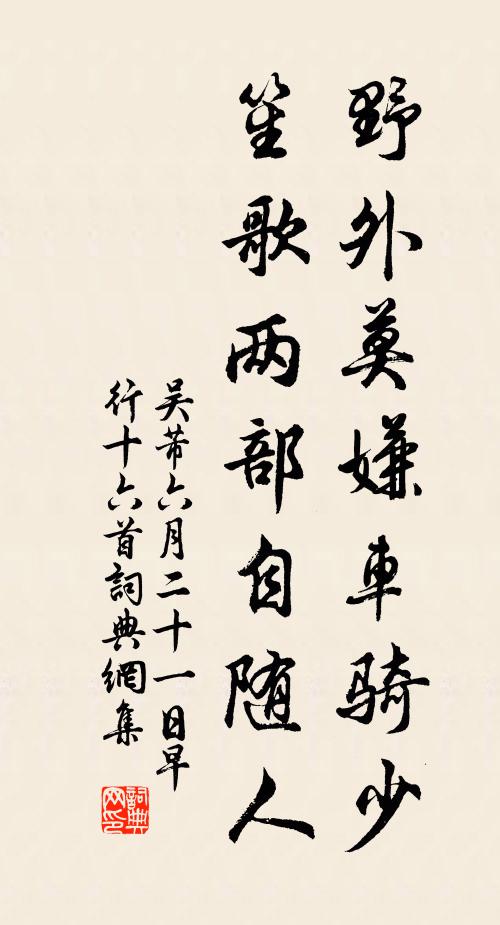 野外莫嫌車騎少
笙歌两部自随人
吴芾六月二十一日早
行十六首詞典網集
詞典
网印